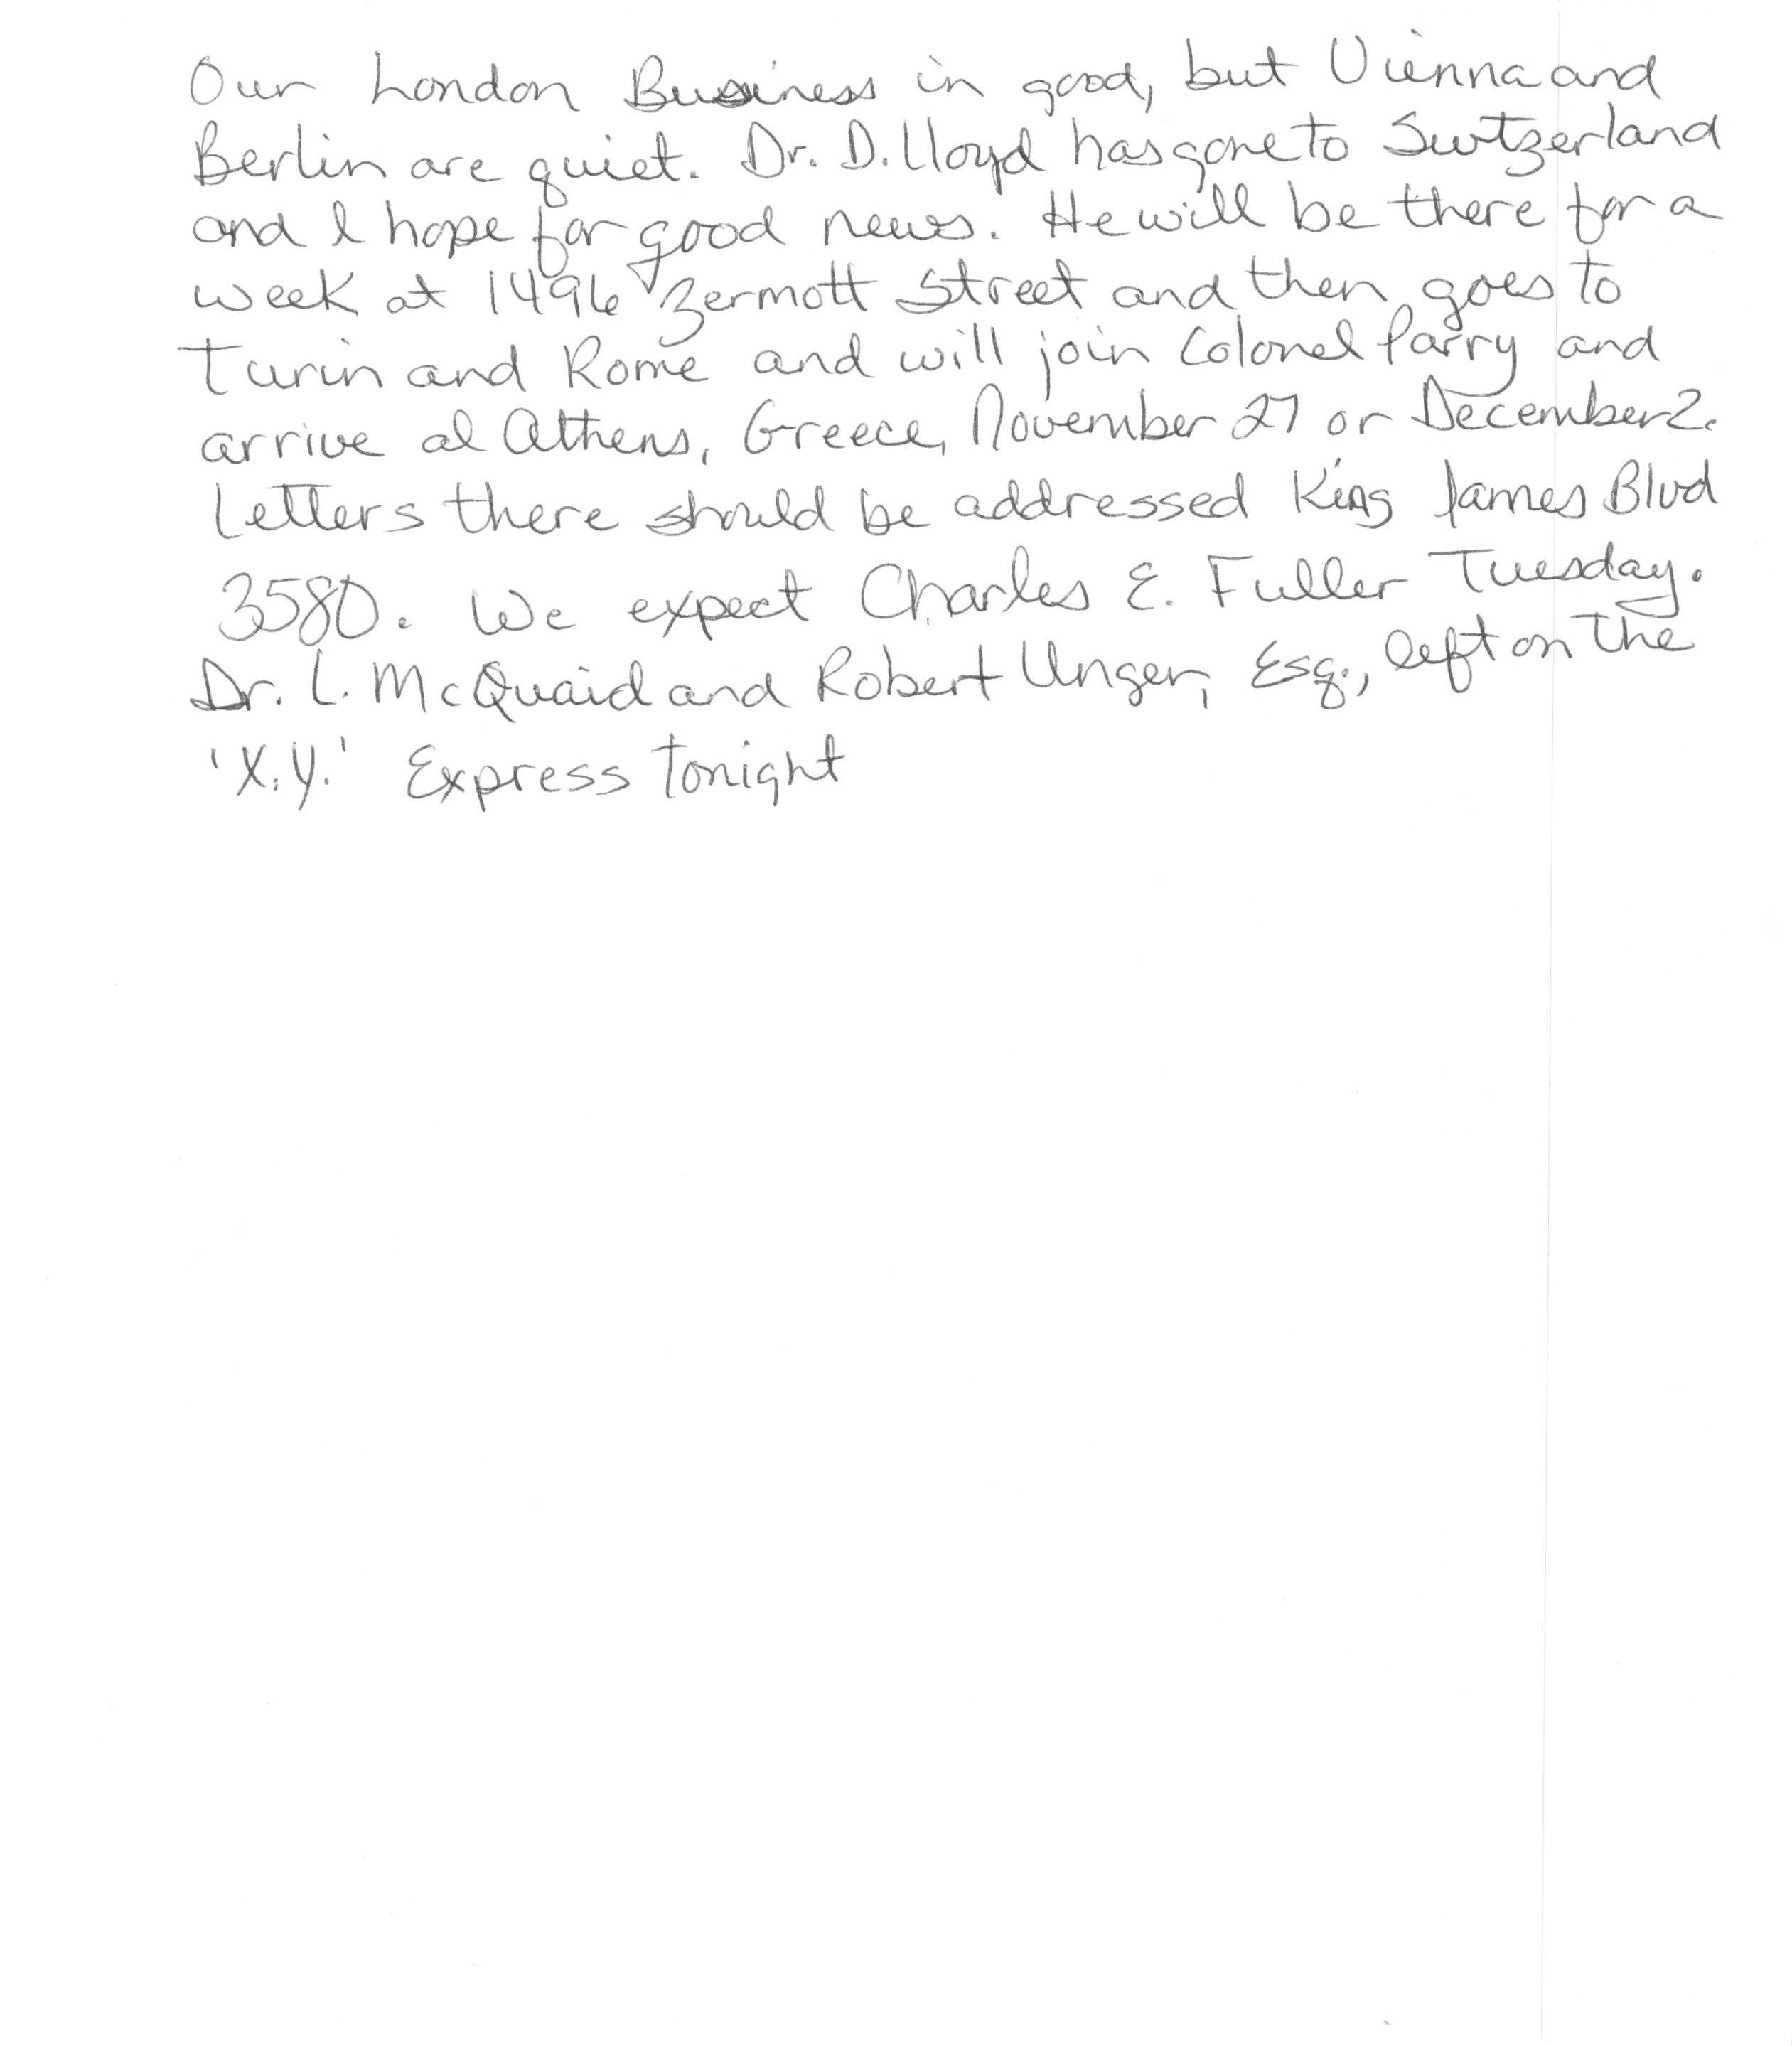 Our London Business in good, but Vienna and
Berlin are quiet. Dr. D. Lloyd has gone to Switzerland
and I hope for good news. He will be there for a
week at 1496 Zermott Street and then goes to
Turin and Rome and will join Colonel Parry and
arrive at Athens, Greece, November 27 or December 2.
Letters there should be addressed King James Blvd
3580. We expect Charles E. Fuller Tuesday.
Dr. L. McQuaid and Robert Unger, Esq., left on the
'X.Y.' Express tonight